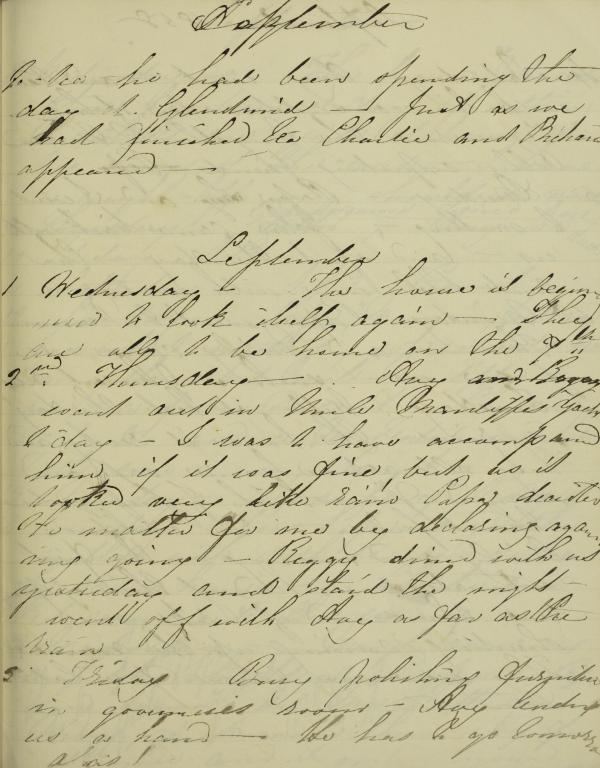 September
to tea he had been spending the
day at Glendruid — Just as we
had finished tea Charlie and Richard
appeared —
September
1 Wednesday — The house is begin
to look itself again — They
are all to be home on the 7th
2nd Thursday — Avy and
went out in Uncle yacht
to day — I was to have accompanied
him if it was fine but as it
looked very like rain Papa decided
the matter for me by declaring again
my going — Reggy dined with us
yesterday and staid the night —
went off with Avy as far as the
train
3 Friday Busy polishing furniture
in governess room — Avy lending
us a hand — He has to go tomorrow
alas!